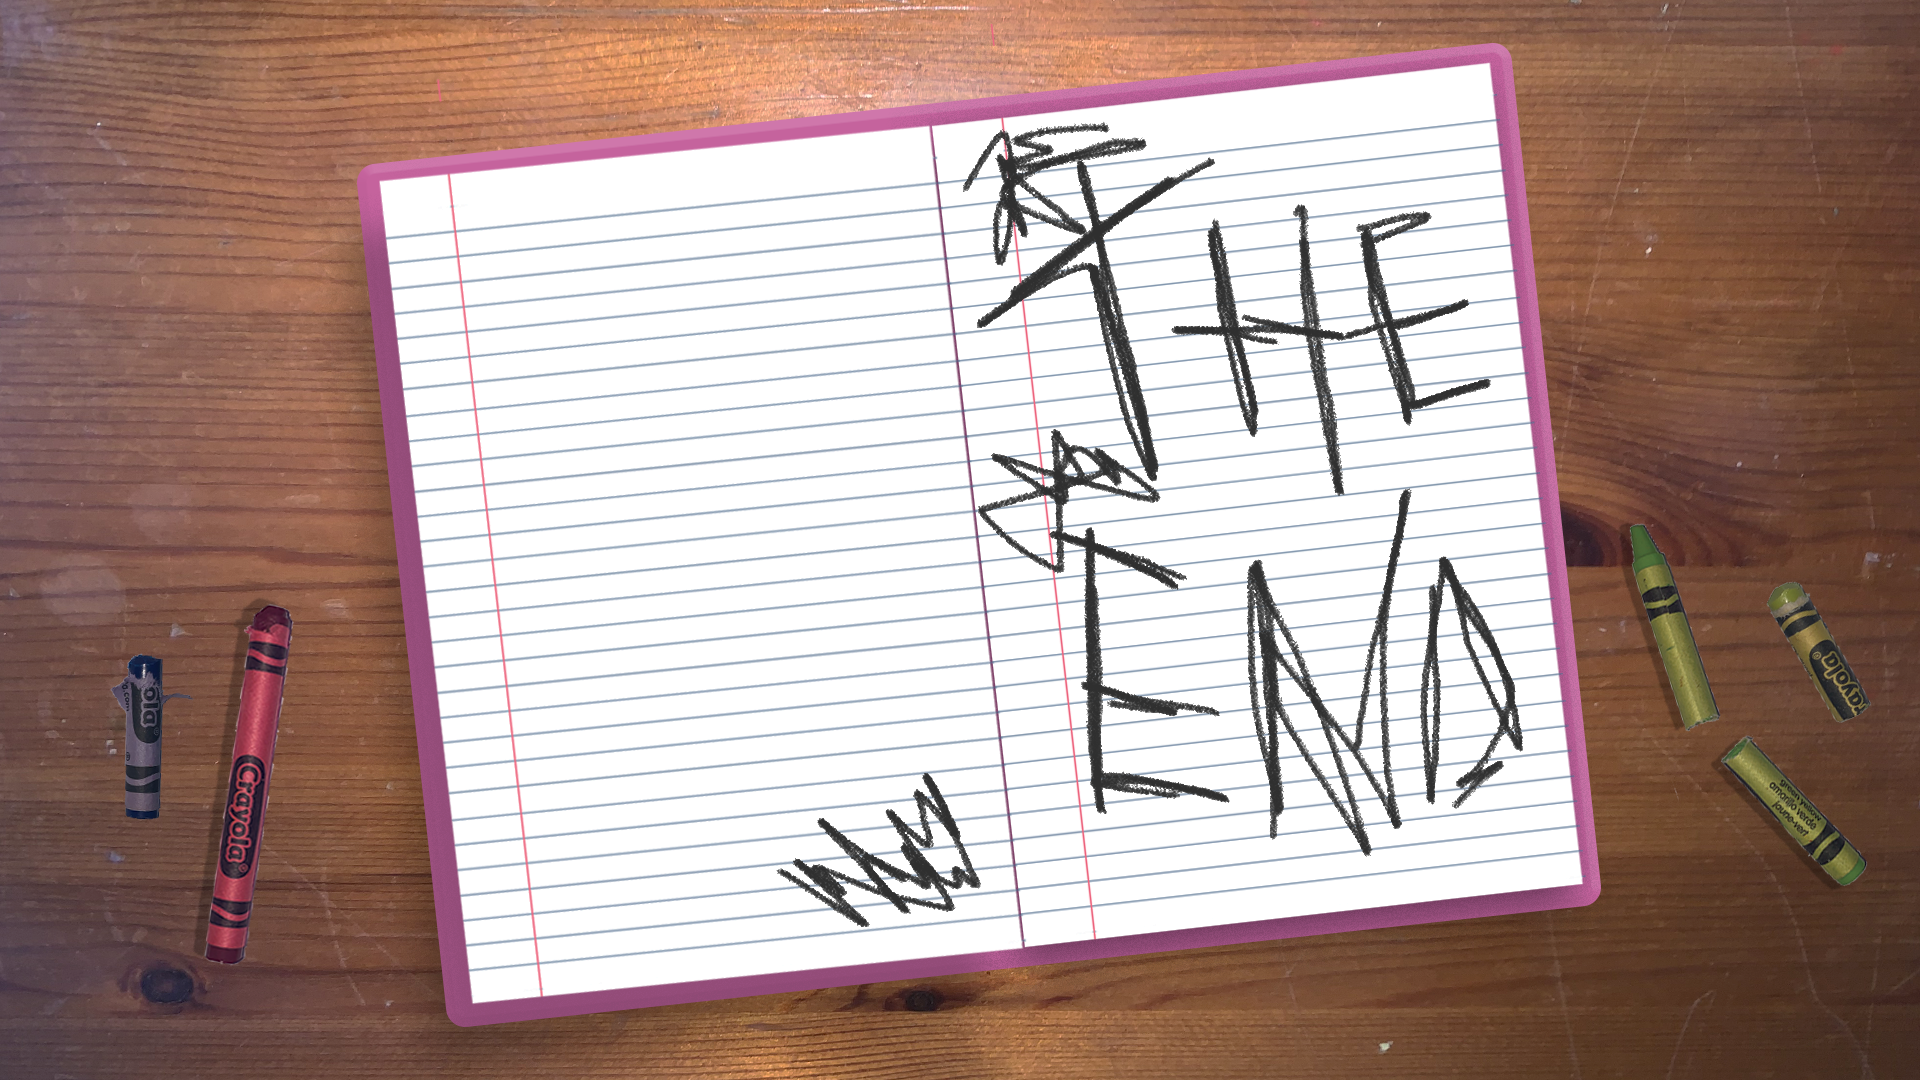 THE
END
Crayola
ola
rayola
green yellow
amarillo verde
jaune-vert